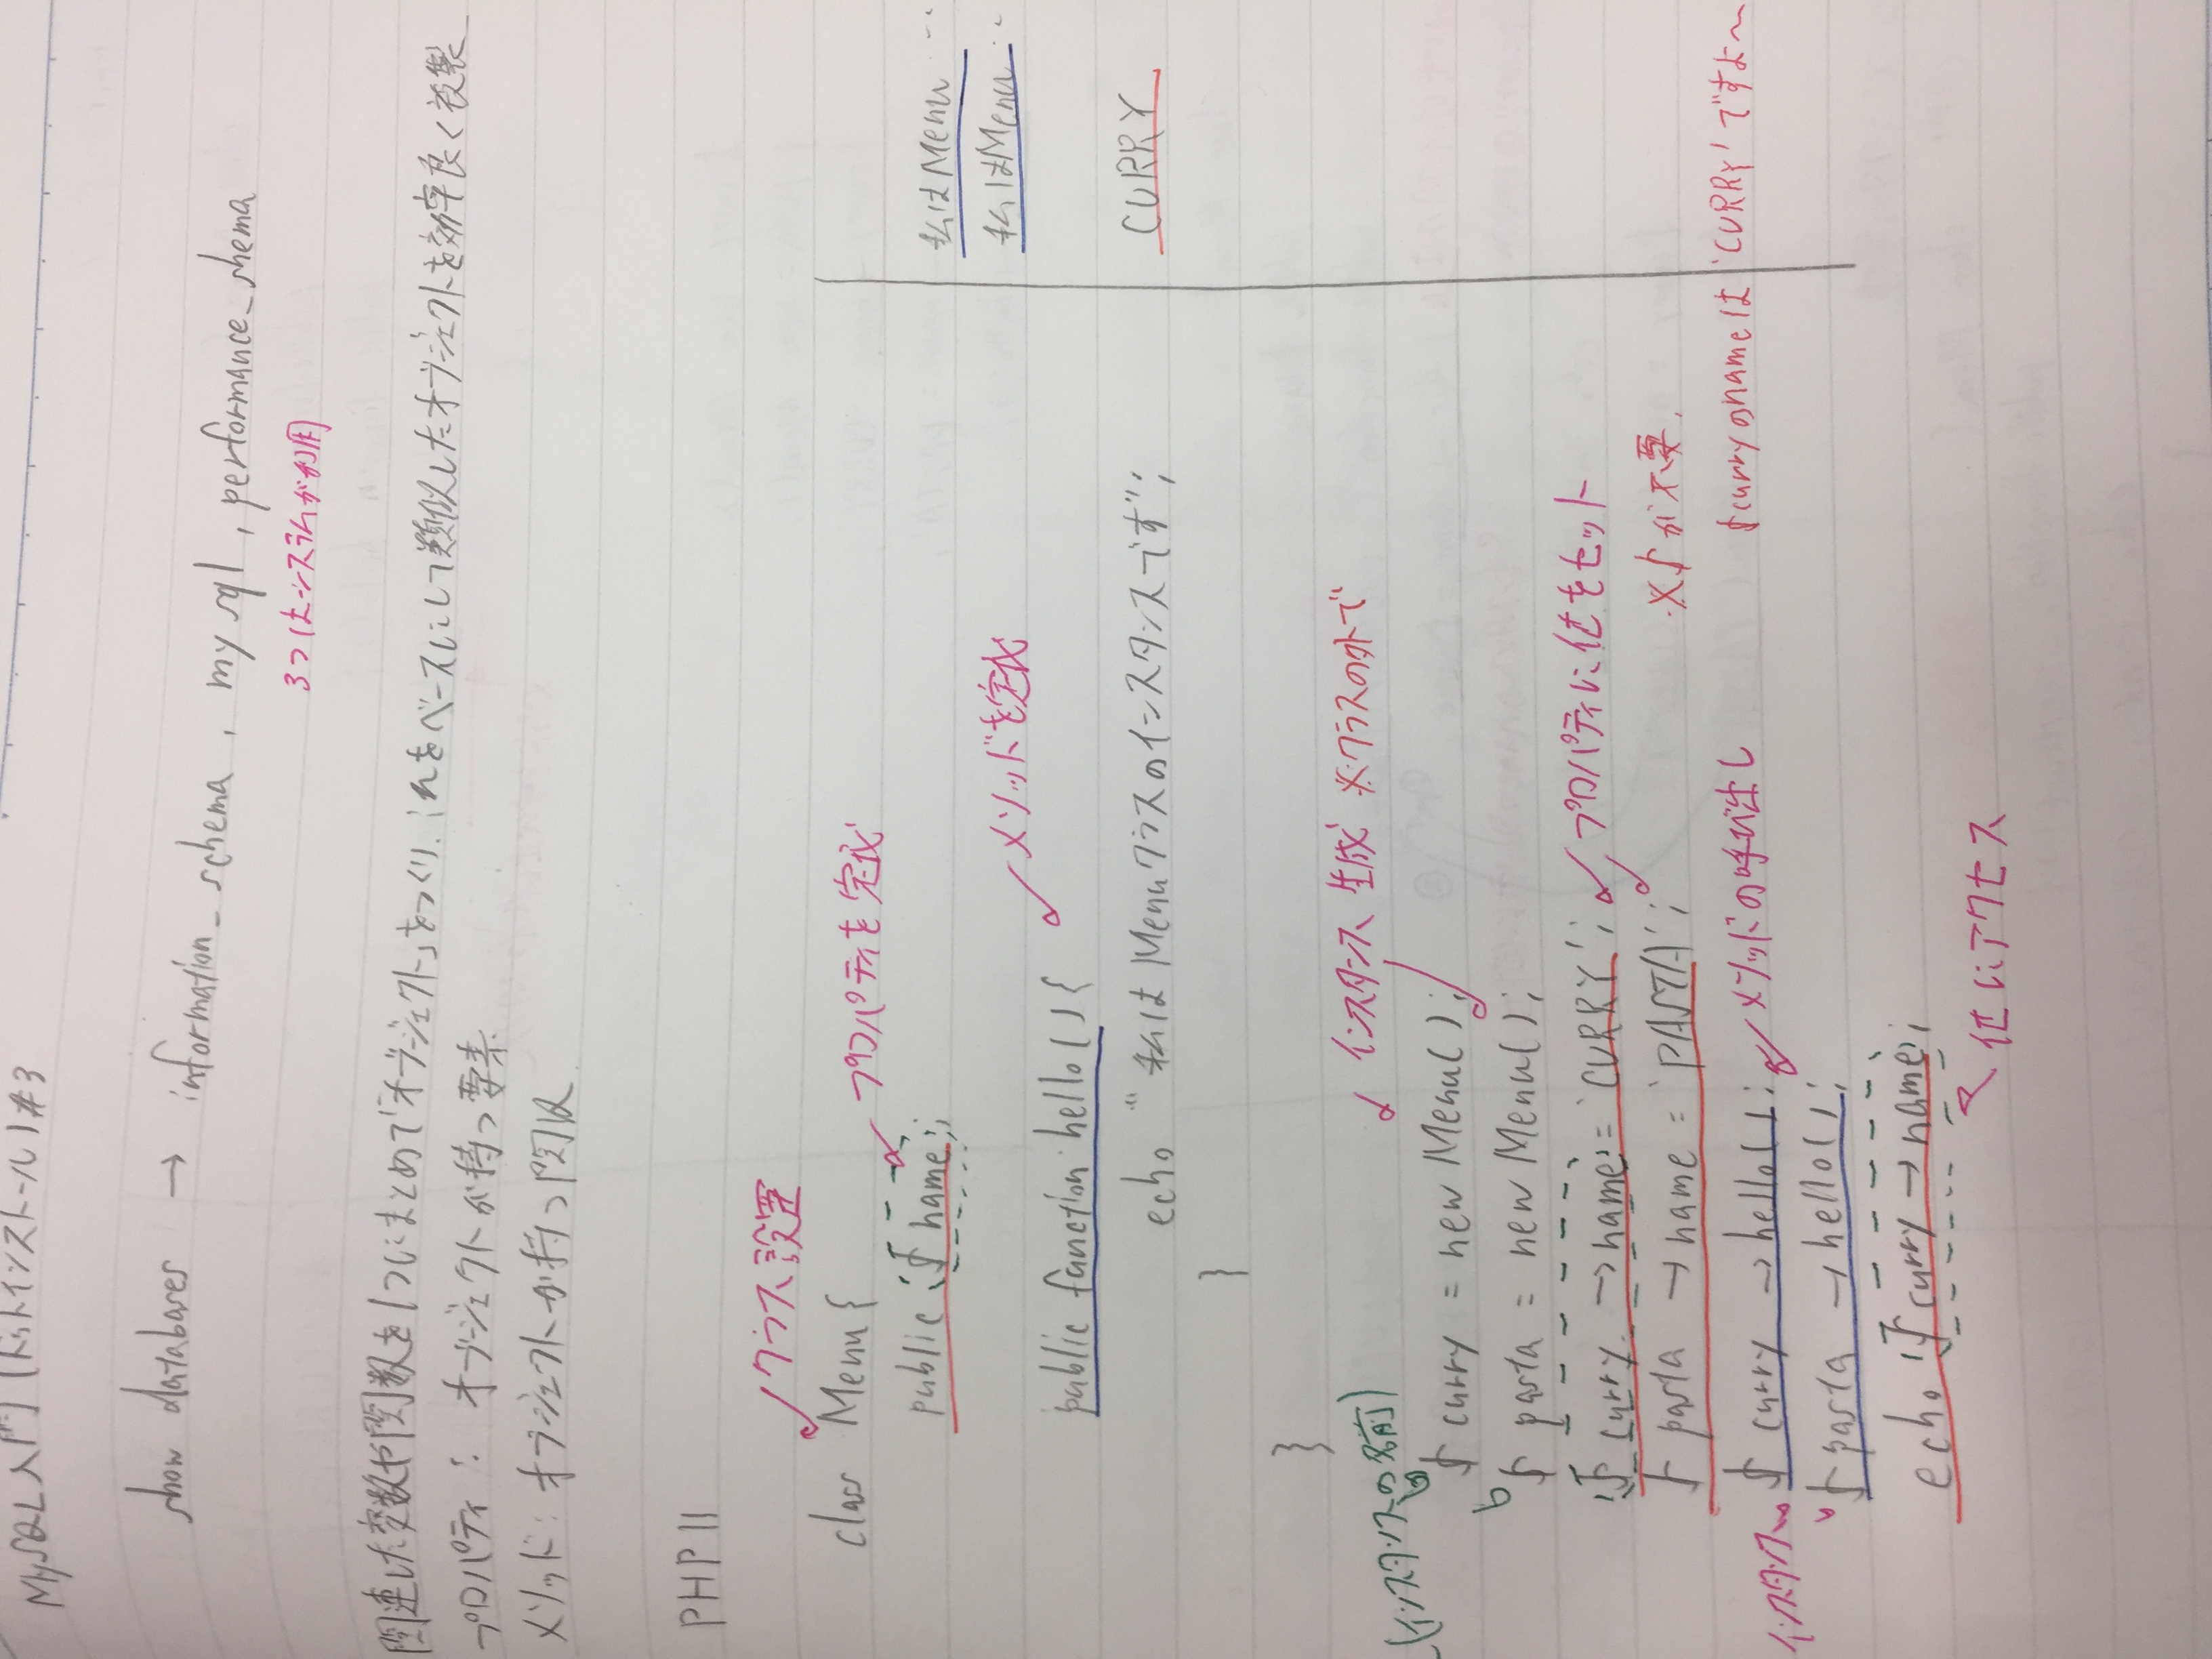 MySQL入門(ドットインストール)#3
show databases → information_schema, mysql, performance_schema
3つはシステムが利用
関連した変数や関数を1つにまとめて「オブジェクト」をつくり、これをベースにして類似したオブジェクトを効率良く複製
プロパティ: オブジェクトが持つ要素
メソッド: オブジェクトが持つ関数
PHP II
クラス設置
class Menu {
プロパティを定義
public $name;
私はMenu…
メソッドを定義
私はMenu…
public function hello() {
echo "私はMenuクラスのインスタンスです";
CURRY
}
}
インスタンス生成 ※クラスの外で
(インスタンスの名前)
$curry = new Menu();
$pasta = new Menu();
$curry → name = 'CURRY';
プロパティに値をセット
$pasta → name = 'PASTA';
※$が不要
$curry → hello();
メソッドの呼び出し
$curryのnameは'CURRY'ですよ〜
インスタンス
$pasta → hello();
echo $curry → name;
値にアクセス